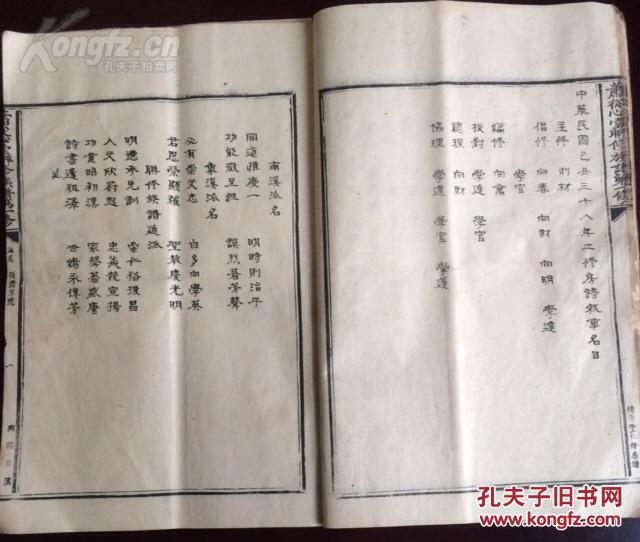 Kongfz.cn
孔夫子拍卖网
中華民國己丑三十八年二修房譜敘事名目
主修 則材
倡修 向春 向財 向明 學達
學官
編修 向富
校對 學達 學官
總理 向財
協理 學達 學官 學達
南溪派名
同道雅慶一 明時則治平
功能徵
象溪派名
必有崇文志 自多向學英
君恩榮顯耀 聖教慶光明
聯修族譜通派
明德承先訓 崇仁裕後昌
人文欣蔚起 忠義競宣揚
功貫昭初漢 家聲著盛唐
詩書遺祖澤 世緒永傳芳
一
孔夫子旧书网
www.kongfz.com